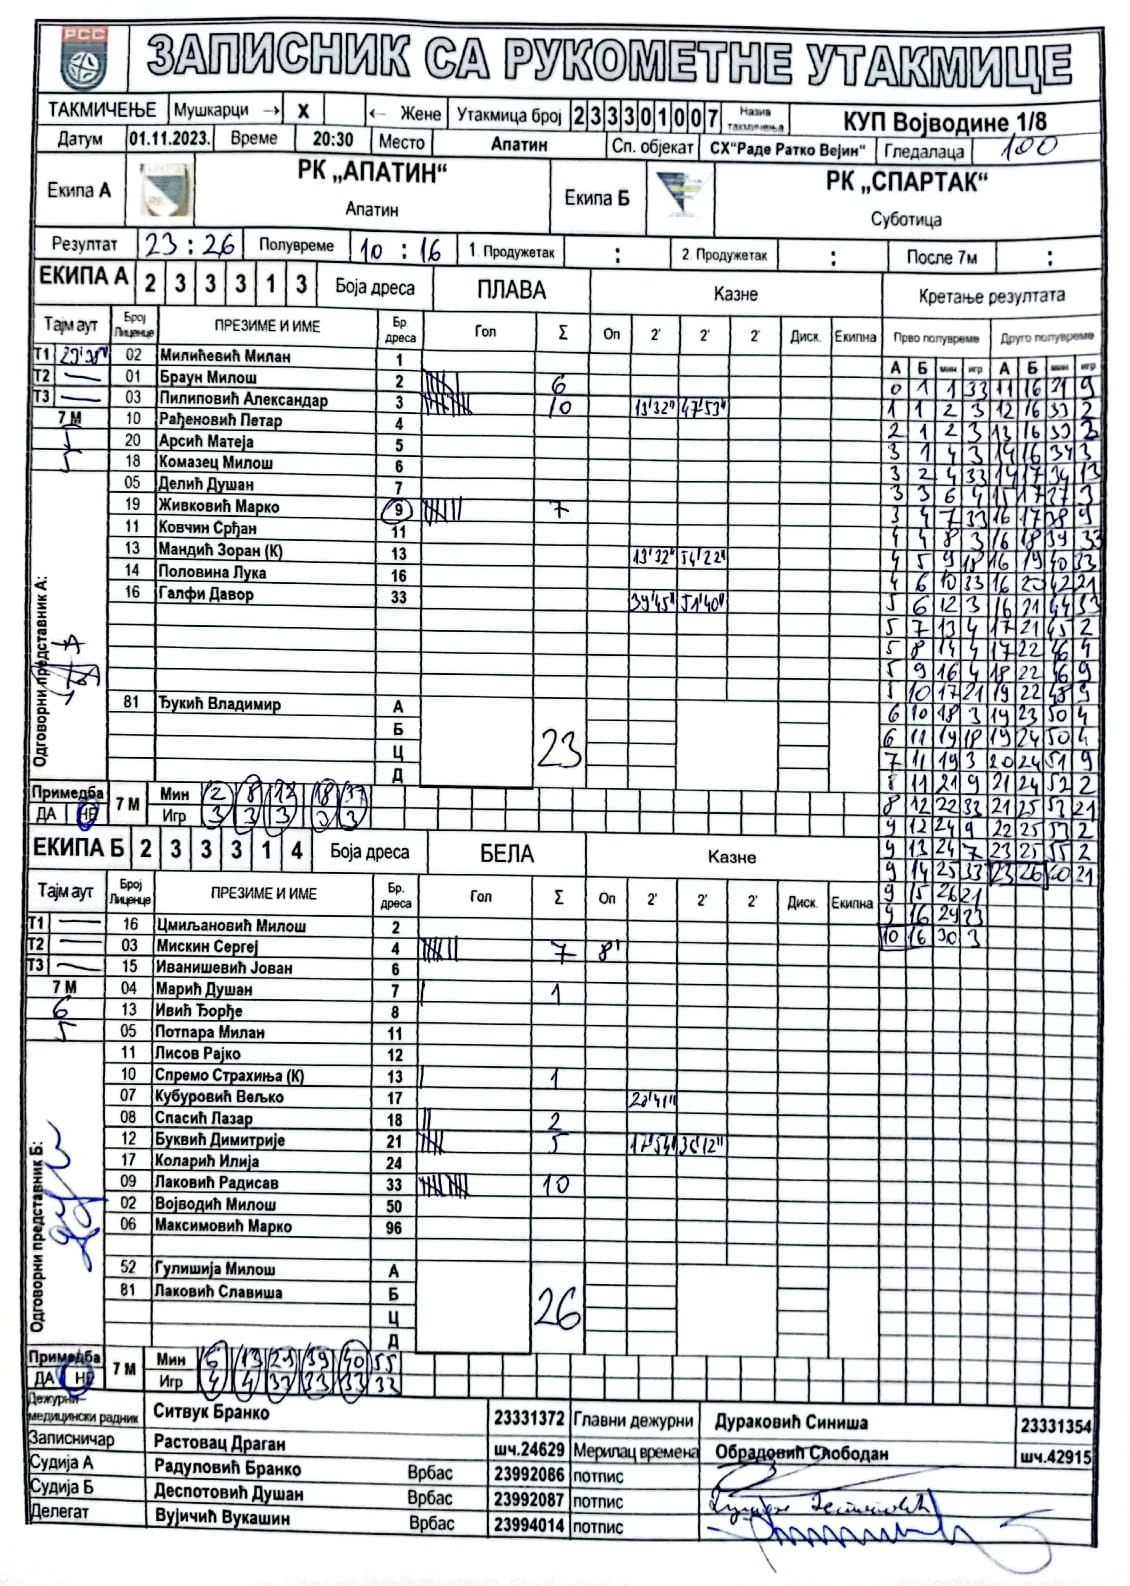 РСС
ЗАПИСНИК СА РУКОМЕТНЕ УТАКМИЦЕ
ТАКМИЧЕЊЕ Мушкарци → X ← Жене Утакмица број 233301007 Назив такмичења КУП Војводине 1/8
Датум 01.11.2023. Време 20:30 Место Апатин Сп. објекат СХ"Раде Ратко Вејин" Гледалаца 100
Екипа А РК „АПАТИН“ Апатин Екипа Б РК „СПАРТАК“ Суботица
Резултат 23 : 26 Полувреме 10 : 16 1. Продужетак : 2. Продужетак : После 7м :
ЕКИПА А 2 3 3 3 1 3 Боја дреса ПЛАВА Казне Кретање резултата
Тајм аут Број Лиценце ПРЕЗИМЕ И ИМЕ Бр. дреса Гол Σ Оп 2' 2' 2' Диск. Екипна Прво полувреме Друго полувреме
А Б мин игр А Б мин игр
Т1 02 Милићевић Милан 1
Т2 — 01 Браун Милош 2 6
Т3 — 03 Пилиповић Александар 3 10 13'32" 47'53"
7 М 10 Рађеновић Петар 4
5 20 Арсић Матеја 5
5 18 Комазец Милош 6
05 Делић Душан 7
19 Живковић Марко 9 7
11 Ковчин Срђан 11
13 Мандић Зоран (К) 13 13'32" 54'22"
14 Половина Лука 16
16 Галфи Давор 33 39'45" 51'40"
Одговорни представник А:
81 Ђукић Владимир А
Б
Ц
Д
23
0 1 1 33 11 16 31 9
1 1 2 3 12 16 33 2
2 1 2 3 13 16 33 2
3 1 4 3 14 16 34 3
3 2 4 33 14 17 34 13
3 3 6 4 15 17 37 3
3 4 7 33 16 17 38 9
4 4 8 3 16 18 39 33
4 5 9 18 16 19 40 33
4 6 10 33 16 20 42 21
5 6 12 3 16 21 44 33
5 7 13 4 17 21 45 2
5 8 14 4 17 22 46 4
5 9 16 4 18 22 46 9
5 10 17 21 19 22 48 9
6 10 18 3 19 23 50 4
6 11 19 18 19 24 50 4
7 11 19 3 20 24 51 9
8 11 21 9 21 24 52 2
8 12 22 33 21 25 53 21
9 12 24 9 22 25 53 2
9 13 24 7 23 25 55 2
9 14 25 33 23 26 60 21
9 15 26 21
9 16 29 13
10 16 30 3
Примедба 7 М Мин 2 8 12 18 37
ДА НЕ Игр 3 3 3 3 3
ЕКИПА Б 2 3 3 3 1 4 Боја дреса БЕЛА Казне
Тајм аут Број Лиценце ПРЕЗИМЕ И ИМЕ Бр. дреса Гол Σ Оп 2' 2' 2' Диск. Екипна
Т1 — 16 Цмиљановић Милош 2
Т2 — 03 Мискин Сергеј 4 7 8'
Т3 — 15 Иванишевић Јован 6
7 М 04 Марић Душан 7 1
6 13 Ивић Ђорђе 8
5 05 Потпара Милан 11
11 Лисов Рајко 12
10 Спремо Страхиња (К) 13 1
07 Кубуровић Вељко 17
08 Спасић Лазар 18 2
12 Буквић Димитрије 21 5 17'54" 36'12"
17 Коларић Илија 24
09 Лаковић Радисав 33 10
02 Војводић Милош 50
06 Максимовић Марко 96
Одговорни представник Б:
52 Гулишија Милош А
81 Лаковић Славиша Б
Ц
Д
26
Примедба 7 М Мин 6 13 29 39 40 55
ДА НЕ Игр 4 4 33 33 33 33
Дежурни медицински радник Ситвук Бранко 23331372 Главни дежурни Дураковић Синиша 23331354
Записничар Растовац Драган шч.24629 Мерилац времена Обрадовић Слободан шч.42915
Судија А Радуловић Бранко Врбас 23992086 потпис
Судија Б Деспотовић Душан Врбас 23992087 потпис
Делегат Вујичић Вукашин Врбас 23994014 потпис